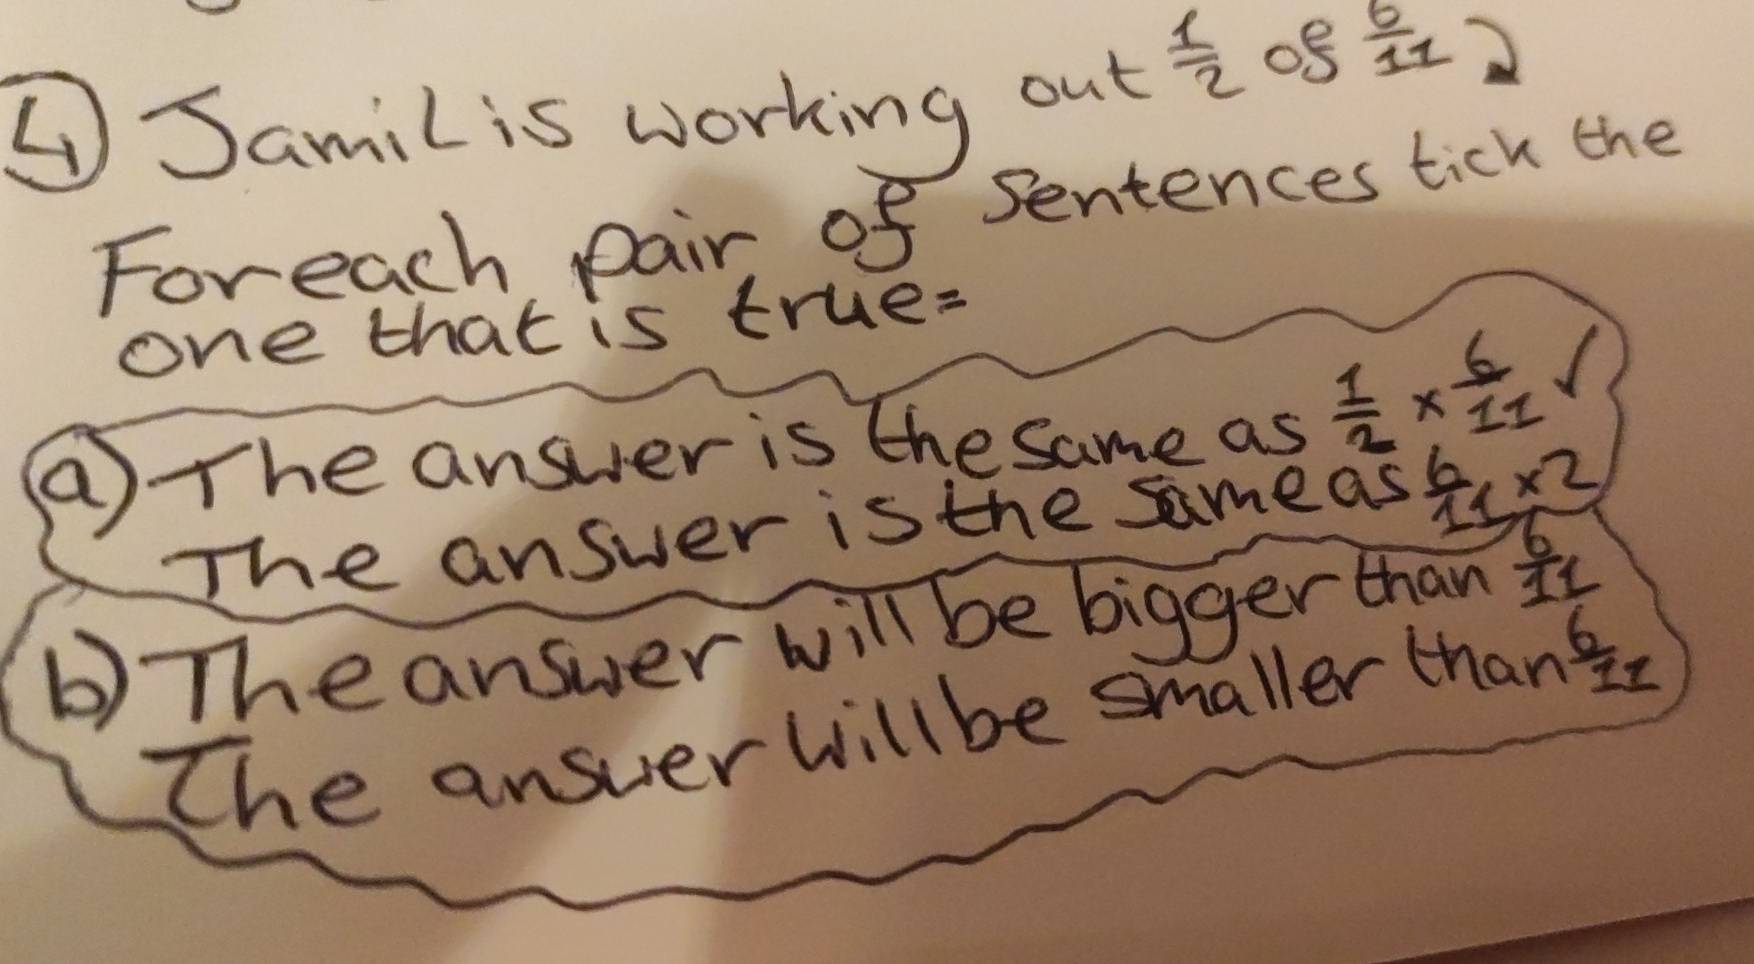 ④ Jamil is working out 1/2 of 6/11
For each pair of sentences tick the
one that is true=
a) The answer is the same as 1/2 × 6/11 ✓
The answer is the same as 6/11 × 2
b) The answer will be bigger than 6/11
The answer will be smaller than 6/11